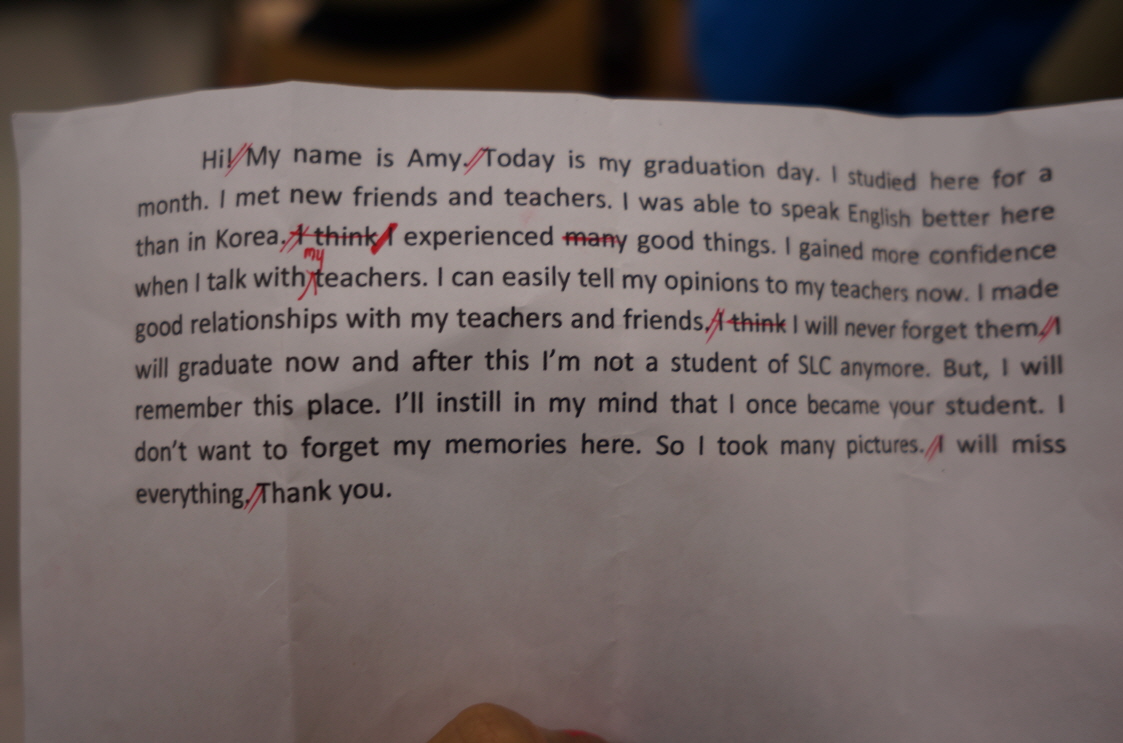 Hi! My name is Amy. Today is my graduation day. I studied here for a
month. I met new friends and teachers. I was able to speak English better here
than in Korea. I think I experienced many good things. I gained more confidence
my
when I talk with teachers. I can easily tell my opinions to my teachers now. I made
good relationships with my teachers and friends. I think I will never forget them. I
will graduate now and after this I'm not a student of SLC anymore. But, I will
remember this place. I'll instill in my mind that I once became your student. I
don't want to forget my memories here. So I took many pictures. I will miss
everything. Thank you.